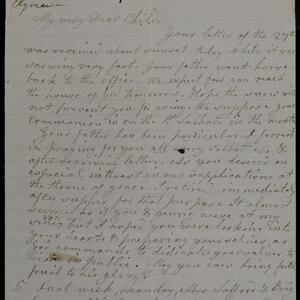 My very Dear Child,
Your letter of the 27th
was received about sunset today while it was
snowing very fast. Your father went horse
back to the office. We expect few can reach
the house of god tomorrow. I hope the snow will
not prevent you going. We suppose your
communion is on the Sabbath in the month
Your father has been particular & fervent
in praying for you all every Sabbath eve &
after receiving letters. As you desired an
especial interest in our supplications at
the throne of grace. I retired immediately
after supper for that purpose. It almost
seems as if you & were at my
but I hope you were looking into
your hearts & preparing yourselves, as
god commands to dedicate yourselves to
him in public. May you ever bring forth
fruit to his glory.
Last week, Monday, Mrs